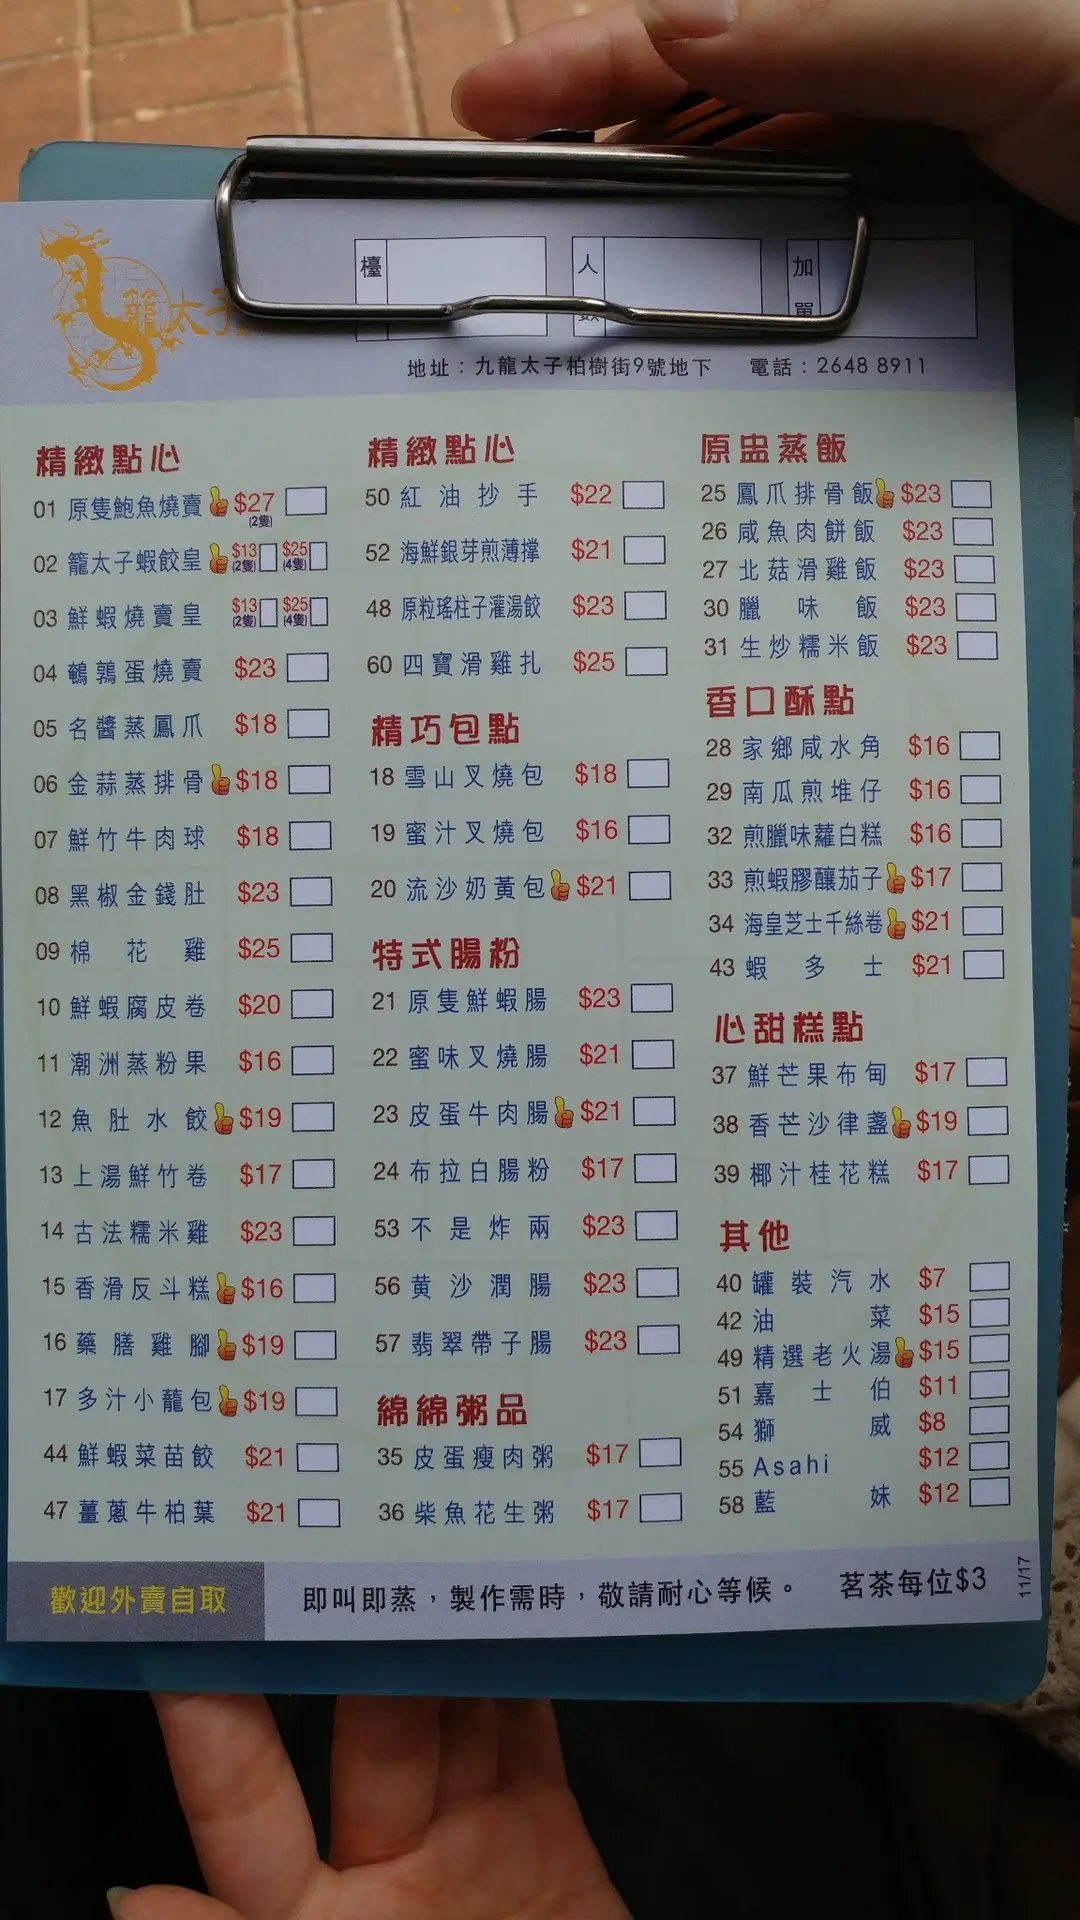 籠太子
檯
人數
加單
地址：九龍太子柏樹街9號地下 電話：2648 8911
精緻點心
01 原隻鮑魚燒賣 $27 (2隻)
02 籠太子蝦餃皇 $13 (2隻) $25 (4隻)
03 鮮蝦燒賣皇 $13 (2隻) $25 (4隻)
04 鵪鶉蛋燒賣 $23
05 名醬蒸鳳爪 $18
06 金蒜蒸排骨 $18
07 鮮竹牛肉球 $18
08 黑椒金錢肚 $23
09 棉花雞 $25
10 鮮蝦腐皮卷 $20
11 潮洲蒸粉果 $16
12 魚肚水餃 $19
13 上湯鮮竹卷 $17
14 古法糯米雞 $23
15 香滑反斗糕 $16
16 藥膳雞腳 $19
17 多汁小蘢包 $19
44 鮮蝦菜苗餃 $21
47 薑蔥牛柏葉 $21
精緻點心
50 紅油抄手 $22
52 海鮮銀芽煎薄撑 $21
48 原粒瑤柱子灌湯餃 $23
60 四寶滑雞扎 $25
精巧包點
18 雪山叉燒包 $18
19 蜜汁叉燒包 $16
20 流沙奶黃包 $21
特式腸粉
21 原隻鮮蝦腸 $23
22 蜜味叉燒腸 $21
23 皮蛋牛肉腸 $21
24 布拉白腸粉 $17
53 不是炸兩 $23
56 黄沙潤腸 $23
57 翡翠帶子腸 $23
綿綿粥品
35 皮蛋瘦肉粥 $17
36 柴魚花生粥 $17
原盅蒸飯
25 鳳爪排骨飯 $23
26 咸魚肉餅飯 $23
27 北菇滑雞飯 $23
30 臘味飯 $23
31 生炒糯米飯 $23
香口酥點
28 家鄉咸水角 $16
29 南瓜煎堆仔 $16
32 煎臘味蘿白糕 $16
33 煎蝦膠釀茄子 $17
34 海皇芝士千絲卷 $21
43 蝦多士 $21
心甜糕點
37 鮮芒果布甸 $17
38 香芒沙律盞 $19
39 椰汁桂花糕 $17
其他
40 罐裝汽水 $7
42 油菜 $15
49 精選老火湯 $15
51 嘉士伯 $11
54 獅威 $8
55 Asahi $12
58 藍妹 $12
歡迎外賣自取
即叫即蒸，製作需時，敬請耐心等候。 茗茶每位$3
11/17